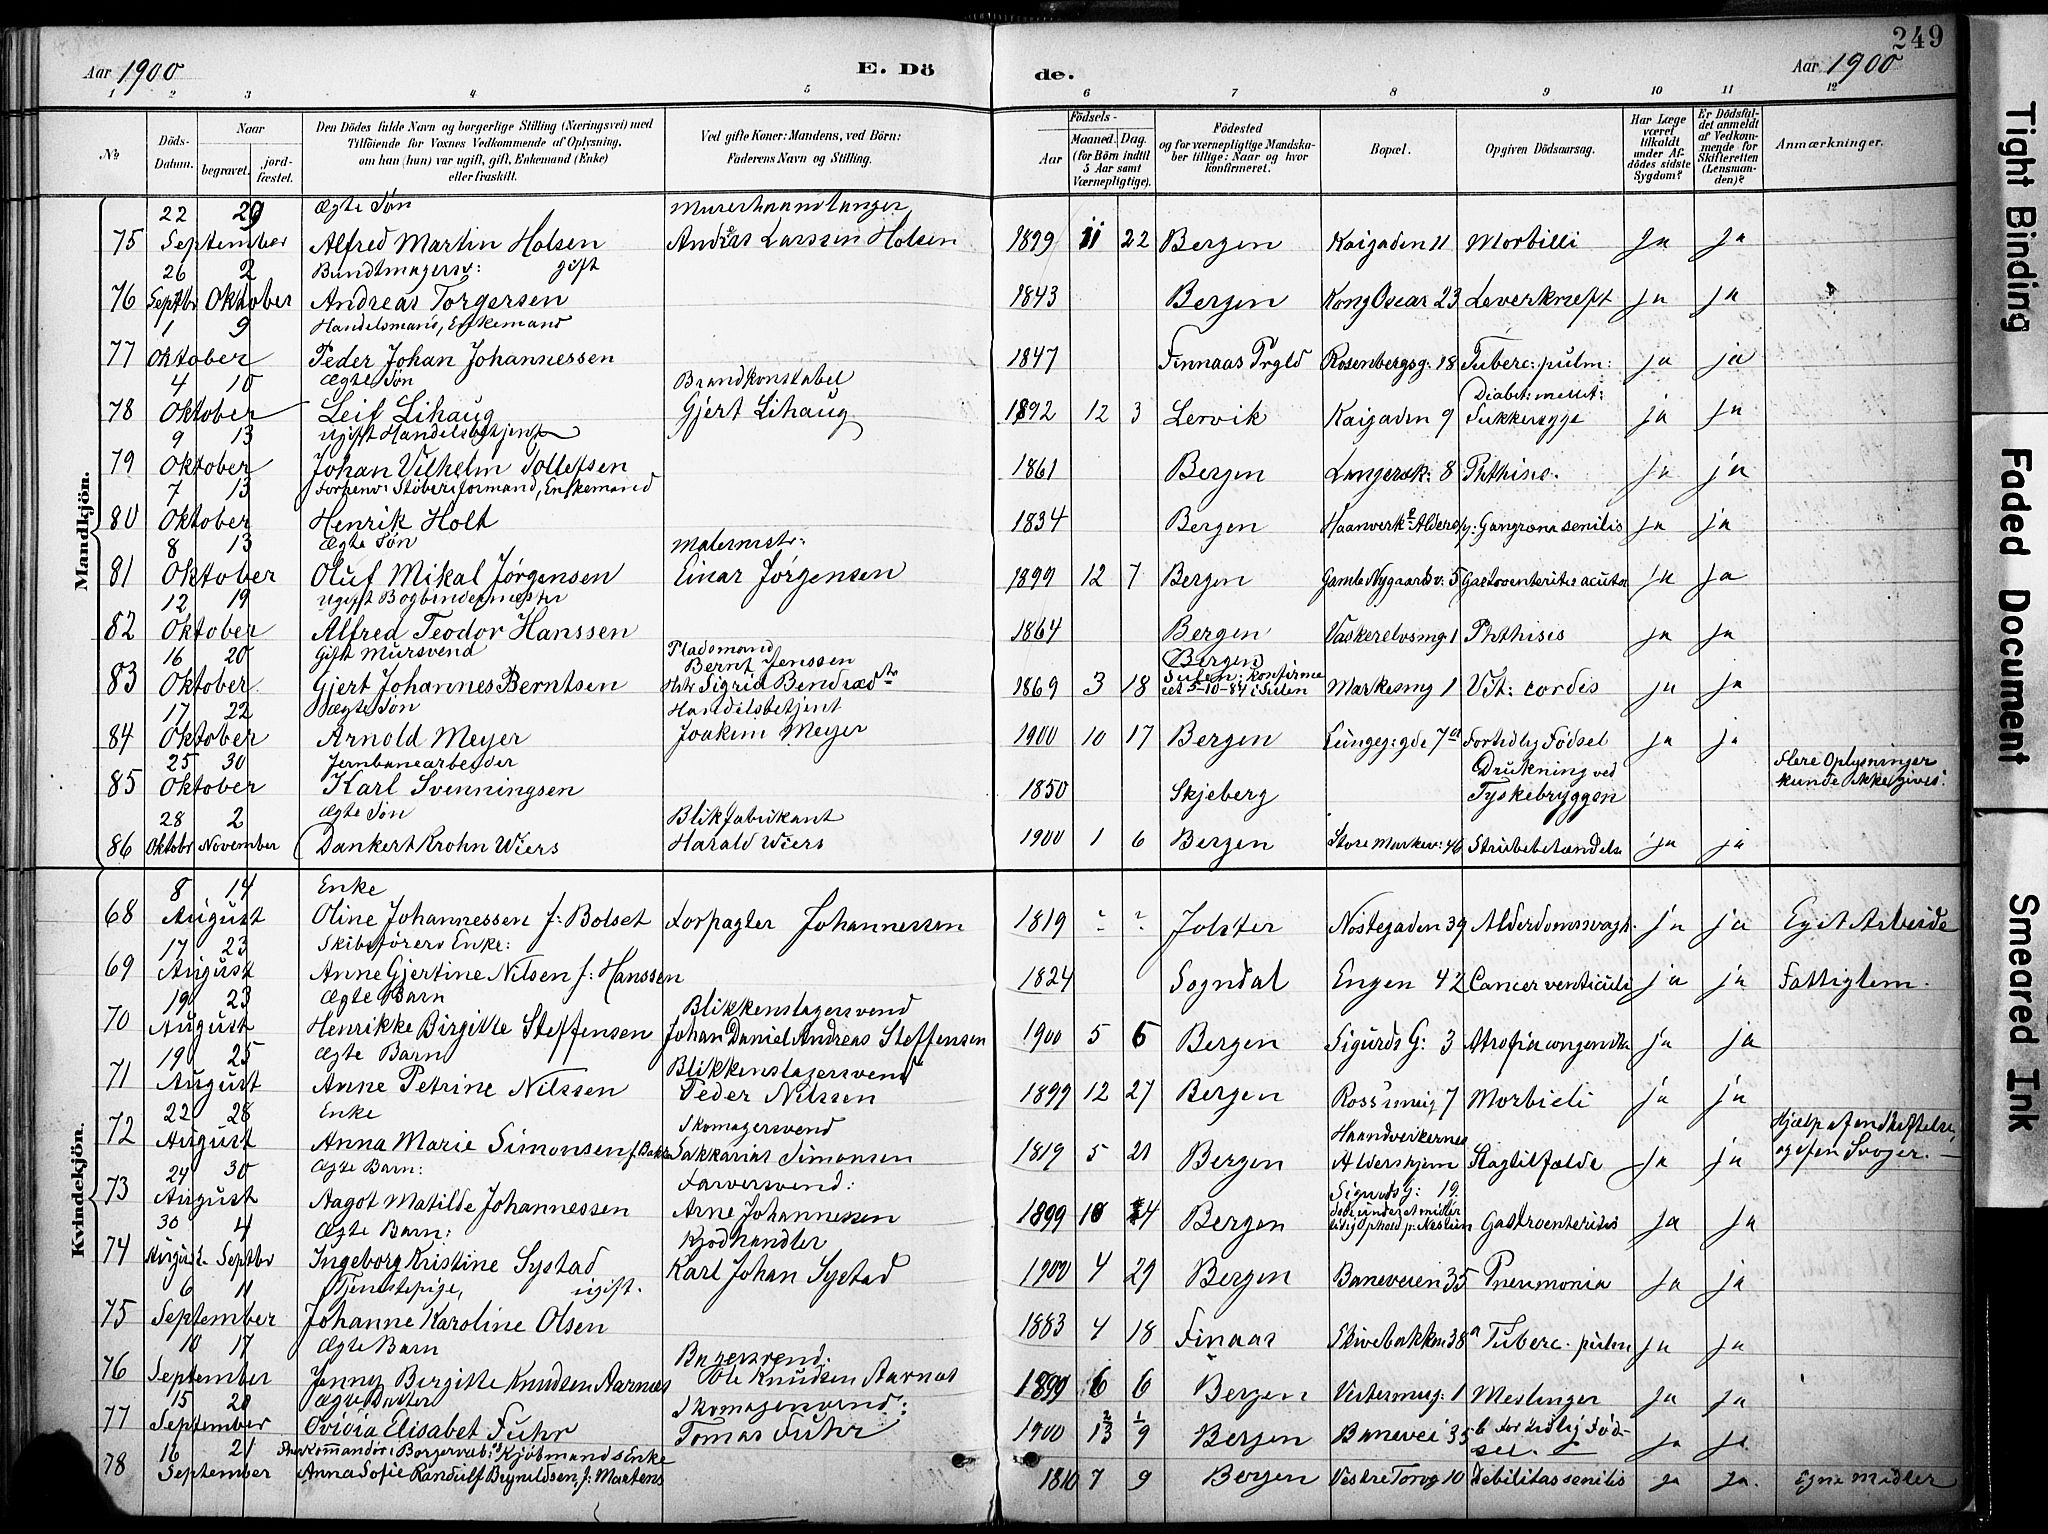 249
Aar 1900 E. Dö de. Aar 1900
1 2 3 4 5 6 7 8 9 10 11 12
№ Döds-Datum. Naar begravet. jordfæstet. Den Dödes fulde Navn og borgerlige Stilling (Næringsvei) med Tilföiende for Voxnes Vedkommende af Oplysning, om han (hun) var ugift, gift, Enkemand (Enke) eller fraskilt. Ved gifte Koner: Mandens, ved Börn: Faderens Navn og Stilling. Födsels- Aar Maaned. Dag. (for Börn indtil 5 Aar samt Værnepligtige). Födested og for værnepligtige Mandskaber tillige: Naar og hvor konfirmeret. Bopæl. Opgiven Dödsaarsag. Har Læge været tilkaldt under Afdödes sidste Sygdom? Er Dödsfaldet anmeldt af Vedkommende for Skifteretten (Lensmanden)? Anmærkninger.
Mandkjön.
22 29 Ægte Søn Murerhaandlanger
75 September Alfred Martin Holsen Andreas Larssen Holsen 1899 11 22 Bergen Kaigaden 11 Morbilli Ja Ja
26 2 Bundtmagersv: gift
76 Septbr Oktober Andreas Torgersen 1843 Bergen Kong Oscar 23 Leverkræft ja ja
1 9 Handelsmand, Enkemand
77 Oktober Peder Johan Johannessen 1847 Finnaas Prgld Rosenbergsg: 18 Tuberc: pulm: ja ja
4 10 Ægte Søn Brandkonstabel Diabet: mellit:
78 Oktober Leif Lihaug Gjert Lihaug 1892 12 3 Lervik Kaigaden 9 Sukkersyge ja ja
9 13 ugift Handelsbetjent
79 Oktober Johan Vilhelm Tollefsen 1861 Bergen Langersk: 8 Phthisis. ja ja
7 13 Forhenv: Støberiformand, Enkemand
80 Oktober Henrik Holt 1834 Bergen Haanverk: Aldersh: Gangræna senilis ja ja
8 13 Ægte Søn Malermstr:
81 Oktober Oluf Mikal Jørgensen Einar Jørgensen 1899 12 7 Bergen Gamle Nygaardsv: 5 Gastroenteritis acuta ja ja
12 19 ugift Bogbindermester
82 Oktober Alfred Teodor Hanssen 1864 Bergen Vaskerelvsmg 1 Phthisis ja ja
16 20 Gift Mursvend Pladsmand Bernt Jenssen Bergen
83 Oktober Gjert Johannes Berntsen Hstr Sigrid Bendixdtr 1869 3 18 Sulen: konfirmeret 5-10-84 i Sulen Markesmg 1 Vit: cordis ja ja
17 22 Ægte Søn Handelsbetjent
84 Oktober Arnold Meyer Joakim Meyer 1900 10 17 Bergen Lungeg: gde 7a Fortidlig Fødsel ja ja
25 30 Jernbanearbeider Drukning ved Flere Oplysninger
85 Oktober Karl Svenningsen 1850 Skjeberg Tyskebryggen kunde ikke gives.
28 2 Ægte Søn Blikfabrikant
86 Oktobr November Dankert Krohn Wiers Harald Wiers 1900 1 6 Bergen Store Markev: 46 Strubebetændelse ja ja
Kvindekjön.
8 14 Enke
68 August Oline Johannessen f: Bolset Forpagter Johannessen 1819 ? ? Jølster Nøstegaden 39 Alderdomssvagh. ja ja Eget Arbeide
17 23 Skibsførers Enke:
69 August Anne Gjertine Nilsen f: Hanssen 1824 Sogndal Engen 42 Cancer venticuli ja ja Fattiglem.
19 23 Ægte Barn Blikkenslagersvend
70 August Henrikke Birgitte Steffensen Johan Daniel Andreas Steffensen 1900 5 6 Bergen Sigurds G: 3 Atrofia congenita ja ja
19 25 Ægte Barn Blikkenslagersvend
71 August Anne Petrine Nilssen Peder Nilssen 1899 12 27 Bergen 7 Morbieli ja ja
22 28 Enke Skomagersvend Haandverkernes Hjælp af
72 August Anna Marie Simonsen f. Sakkarias Simonsen 1819 5 21 Bergen Aldershjem Slagtilfælde ja ja Svoger.
24 30 Ægte Barn: Farversvend: Sigurdsg: 19.
73 August Aagot Matilde Johannessen Arne Johannessen 1899 10 14 Bergen Gastroenteritis ja ja
30 4 Ægte Barn: Kjødhandler
74 August Septbr Ingeborg Kristine Systad Karl Johan Systad 1900 4 29 Bergen Baneveien 35 Pneumonia ja ja
6 11 Tjenestepige, ugift.
75 September Johanne Karoline Olsen 1883 4 18 Finaas Skivebakken 38a Tuberc. pulm ja ja
10 17 Ægte Barn Bagersvend:
76 September Jenny Bergitte Knudsen Aarnes Ole Knudsen Aarnas 1899 6 6 Bergen Vestermug: 1 Meslinger ja ja
15 20 Ægte Datter Skomagersvend:
77 September Ovidia Elisabet Fuhr Tomas Fuhr 1900 9 Bergen Banevei 35b For tidlig Fødsel. ja ja
16 21 Kjøbmands Enke
78 September Anna Sofie Randulf Brynildsen f: Martens 1810 7 9 Bergen Vestre Torvg 10 Debilitas senilis ja ja. Egne Midler
Tight Binding
Faded Document
Smeared Ink